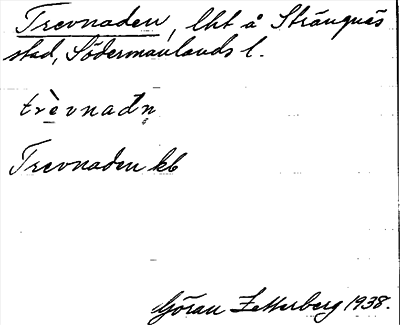 Trevnaden, lht å Strängnäs
stad, Södermanlands l.
trὲvnadn̥
Trevnaden kb
Göran Zetterberg 1938.